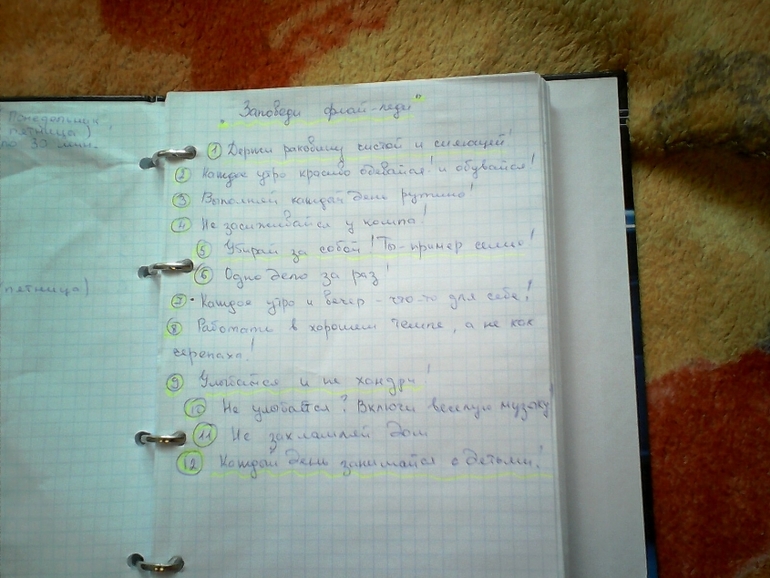 Понедельник,
пятница)
по 30 мин.
пятница)
"Заповеди флай-леди"
1 Держи раковину чистой и сияющей!
2 Каждое утро красиво одевайся! и обувайся!
3 Выполняй каждый день рутины!
4 Не засиживайся у компа!
5 Убирай за собой! Ты-пример семье!
6 Одно дело за раз!
7 Каждое утро и вечер - что-то для себя!
8 Работать в хорошем темпе, а не как
черепаха!
9 Улыбайся и не хандри!
10 Не улыбается? Включи веселую музыку!
11 Не захламляй дом
12 Каждый день занимайся с детьми!